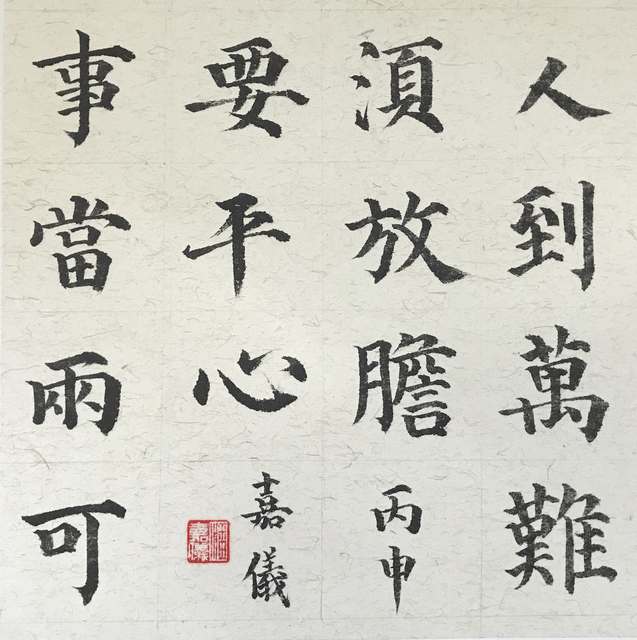 人到萬難
湏放膽
丙申
事當兩可
要平心
嘉儀